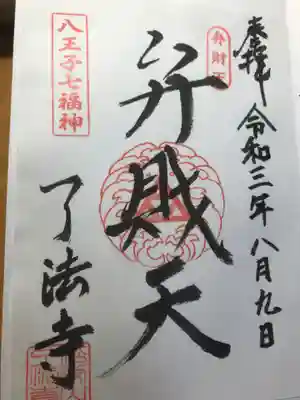 奉拝 令和三年八月九日
弁財天
弁財天
八王子七福神
了法寺